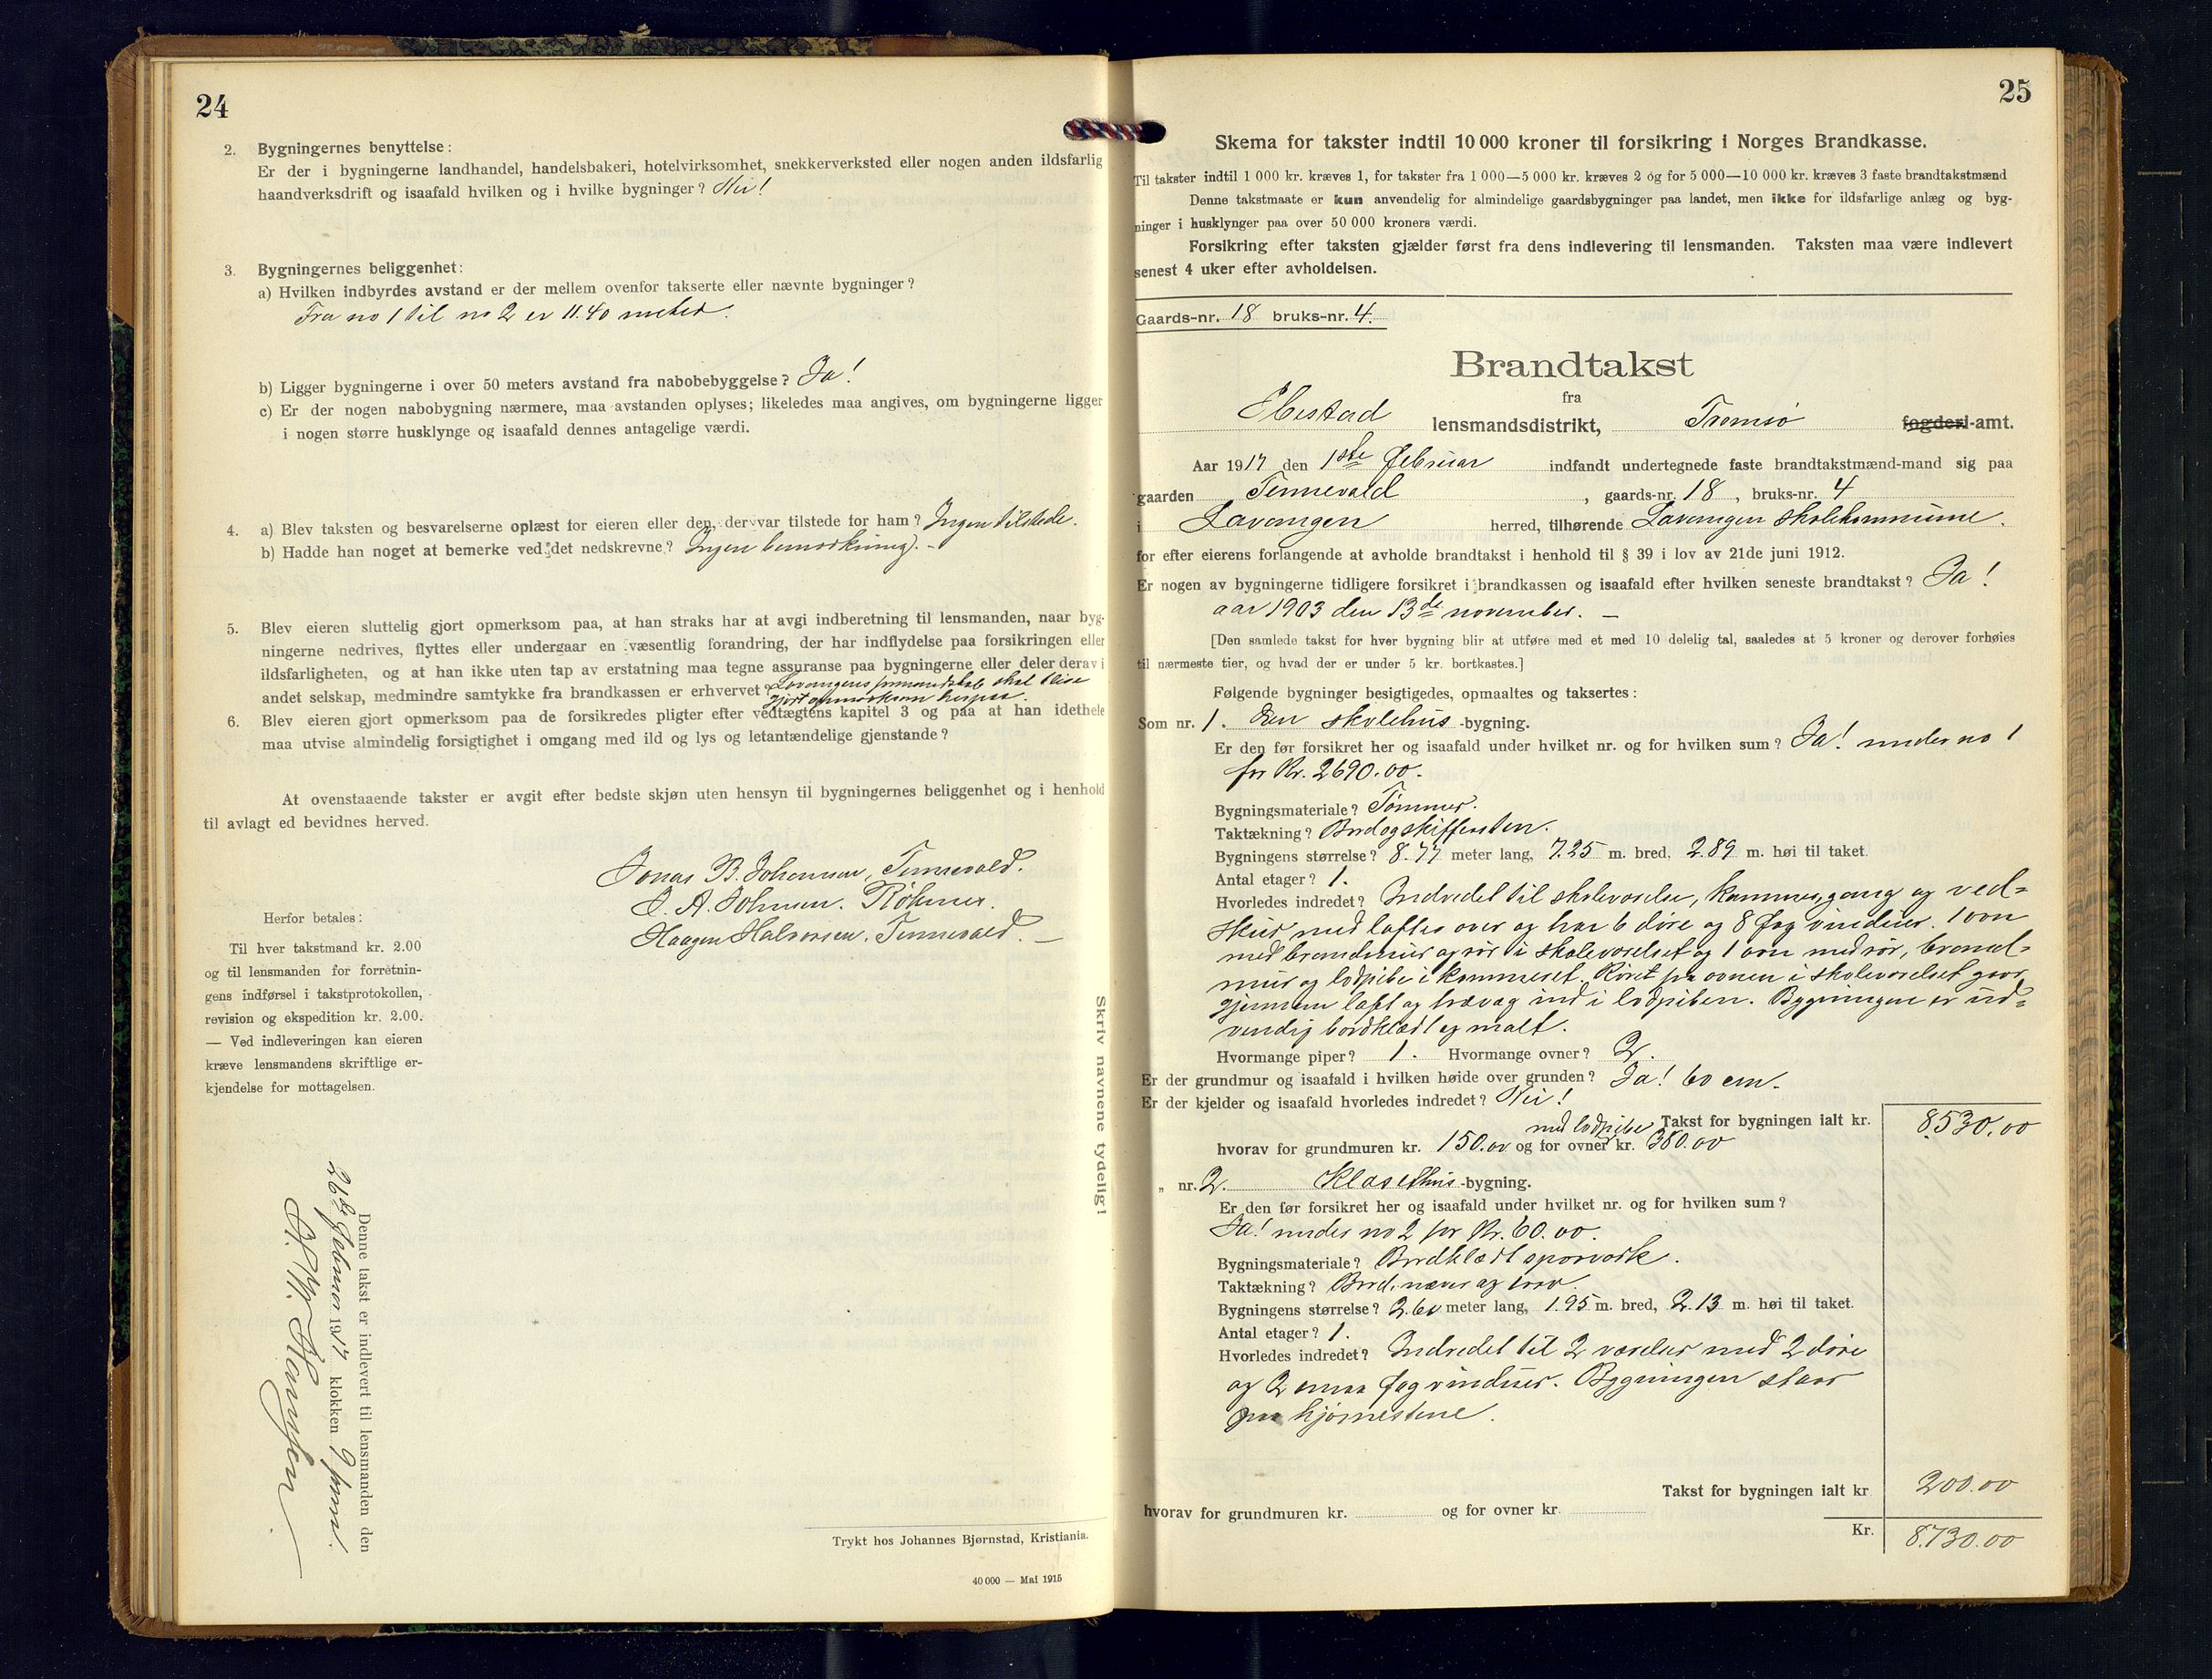 24
2. Bygningernes benyttelse:
Er der i bygningerne landhandel, handelsbakeri, hotelvirksomhet, snekkerverksted eller nogen anden ildsfarlig
haandverksdrift og isaafald hvilken og i hvilke bygninger? Nei!
3. Bygningernes beliggenhet:
a) Hvilken indbyrdes avstand er der mellem ovenfor takserte eller nævnte bygninger?
Fra no 1 til no 2 er 11.40 meter.
b) Ligger bygningerne i over 50 meters avstand fra nabobebyggelse? Ja!
c) Er der nogen nabobygning nærmere, maa avstanden oplyses; likeledes maa angives, om bygningerne ligger
i nogen større husklynge og isaafald dennes antagelige værdi.
4. a) Blev taksten og besvarelserne oplæst for eieren eller den, der var tilstede for ham? Ingen tilstede.
b) Hadde han noget at bemerke ved det nedskrevne? Ingen bemærkning. -
5. Blev eieren sluttelig gjort opmerksom paa, at han straks har at avgi indberetning til lensmanden, naar byg-
ningerne nedrives, flyttes eller undergaar en væsentlig forandring, der har indflydelse paa forsikringen eller
ildsfarligheten, og at han ikke uten tap av erstatning maa tegne assuranse paa bygningerne eller deler derav i
andet selskap, medmindre samtykke fra brandkassen er erhvervet? Lavangens formandskab skal blive
gjort opmærksom herpaa.
6. Blev eieren gjort opmerksom paa de forsikredes pligter efter vedtægtens kapitel 3 og paa at han idethele
maa utvise almindelig forsigtighet i omgang med ild og lys og letantændelige gjenstande?
At ovenstaaende takster er avgit efter bedste skjøn uten hensyn til bygningernes beliggenhet og i henhold
til avlagt ed bevidnes herved.
Jonas B. Johansen, Tennevold.
J. A. Johnsen.
Haagen Halvorsen, Tennevold. -
Herfor betales:
Til hver takstmand kr. 2.00
og til lensmanden for forretnin-
gens indførsel i takstprotokollen,
revision og ekspedition kr. 2.00.
— Ved indleveringen kan eieren
kræve lensmandens skriftlige er-
kjendelse for mottagelsen.
Skriv navnene tydelig!
Denne takst er indlevert til lensmanden den
26de februar 1917 klokken 9 form.
Trykt hos Johannes Bjørnstad, Kristiania.
40 000 — Mai 1915
25
Skema for takster indtil 10 000 kroner til forsikring i Norges Brandkasse.
Til takster indtil 1 000 kr. kræves 1, for takster fra 1 000—5 000 kr. kræves 2 og for 5 000—10 000 kr. kræves 3 faste brandtakstmænd
Denne takstmaate er kun anvendelig for almindelige gaardsbygninger paa landet, men ikke for ildsfarlige anlæg og byg-
ninger i husklynger paa over 50 000 kroners værdi.
Forsikring efter taksten gjælder først fra dens indlevering til lensmanden. Taksten maa være indlevert
senest 4 uker efter avholdelsen.
Gaards-nr. 18 bruks-nr. 4.
Brandtakst
fra
Ibestad lensmandsdistrikt, Tromsø fogderi-amt.
Aar 1917 den 1ste februar indfandt undertegnede faste brandtakstmænd-mand sig paa
gaarden Tennevold, gaards-nr. 18, bruks-nr. 4
i Lavangen herred, tilhørende Lavangen skolekommune.
for efter eierens forlangende at avholde brandtakst i henhold til § 39 i lov av 21de juni 1912.
Er nogen av bygningerne tidligere forsikret i brandkassen og isaafald efter hvilken seneste brandtakst? Ja!
aar 1903 den 13de november. -
[Den samlede takst for hver bygning blir at utføre med et med 10 delelig tal, saaledes at 5 kroner og derover forhøies
til nærmeste tier, og hvad der er under 5 kr. bortkastes.]
Følgende bygninger besigtigedes, opmaaltes og taksertes:
Som nr. 1. Den skolehus-bygning.
Er den før forsikret her og isaafald under hvilket nr. og for hvilken sum? Ja! under no 1
for Kr. 2690.00.
Bygningsmateriale? Tømmer.
Taktækning? Bord og skiffersten.
Bygningens størrelse? 8.77 meter lang, 7.25 m. bred, 2.89 m. høi til taket.
Antal etager? 1.
Hvorledes indredet? Indredet til skoleværelse, kammer, gang og ved-
skur med lofter over og har 6 døre og 8 fag vinduer. 1 ovn
med brandmur og rør i skoleværelset og 1 ovn med rør, brand-
mur og lodpibe i kammeret. Røret fra ovnen i skoleværelset gaar
gjennem loft og tværveg ind i lodpiben. Bygningen er ud-
vendig bordklædt og malt.
Hvormange piper? 1. Hvormange ovner? 2.
Er der grundmur og isaafald i hvilken høide over grunden? Ja! 60 cm.
Er der kjelder og isaafald hvorledes indredet? Nei!
Takst for bygningen ialt kr. 8530.00
med lodpibe
hvorav for grundmuren kr. 150.00 og for ovner kr. 380.00
„ nr. 2. Klosethus-bygning.
Er den før forsikret her og isaafald under hvilket nr. og for hvilken sum?
Ja! under no 2 for Kr. 60.00.
Bygningsmateriale? Bordklædt sporværk.
Taktækning? Bord, næver og torv.
Bygningens størrelse? 2.60 meter lang, 1.95 m. bred, 2.13 m. høi til taket.
Antal etager? 1.
Hvorledes indredet? Indredet til 2 værelser med 2 døre
og 2 smaa fag vinduer. Bygningen staar
paa hjørnestene.
Takst for bygningen ialt kr 200.00
hvorav for grundmuren kr. og for ovner kr.
Kr. 8.730.00